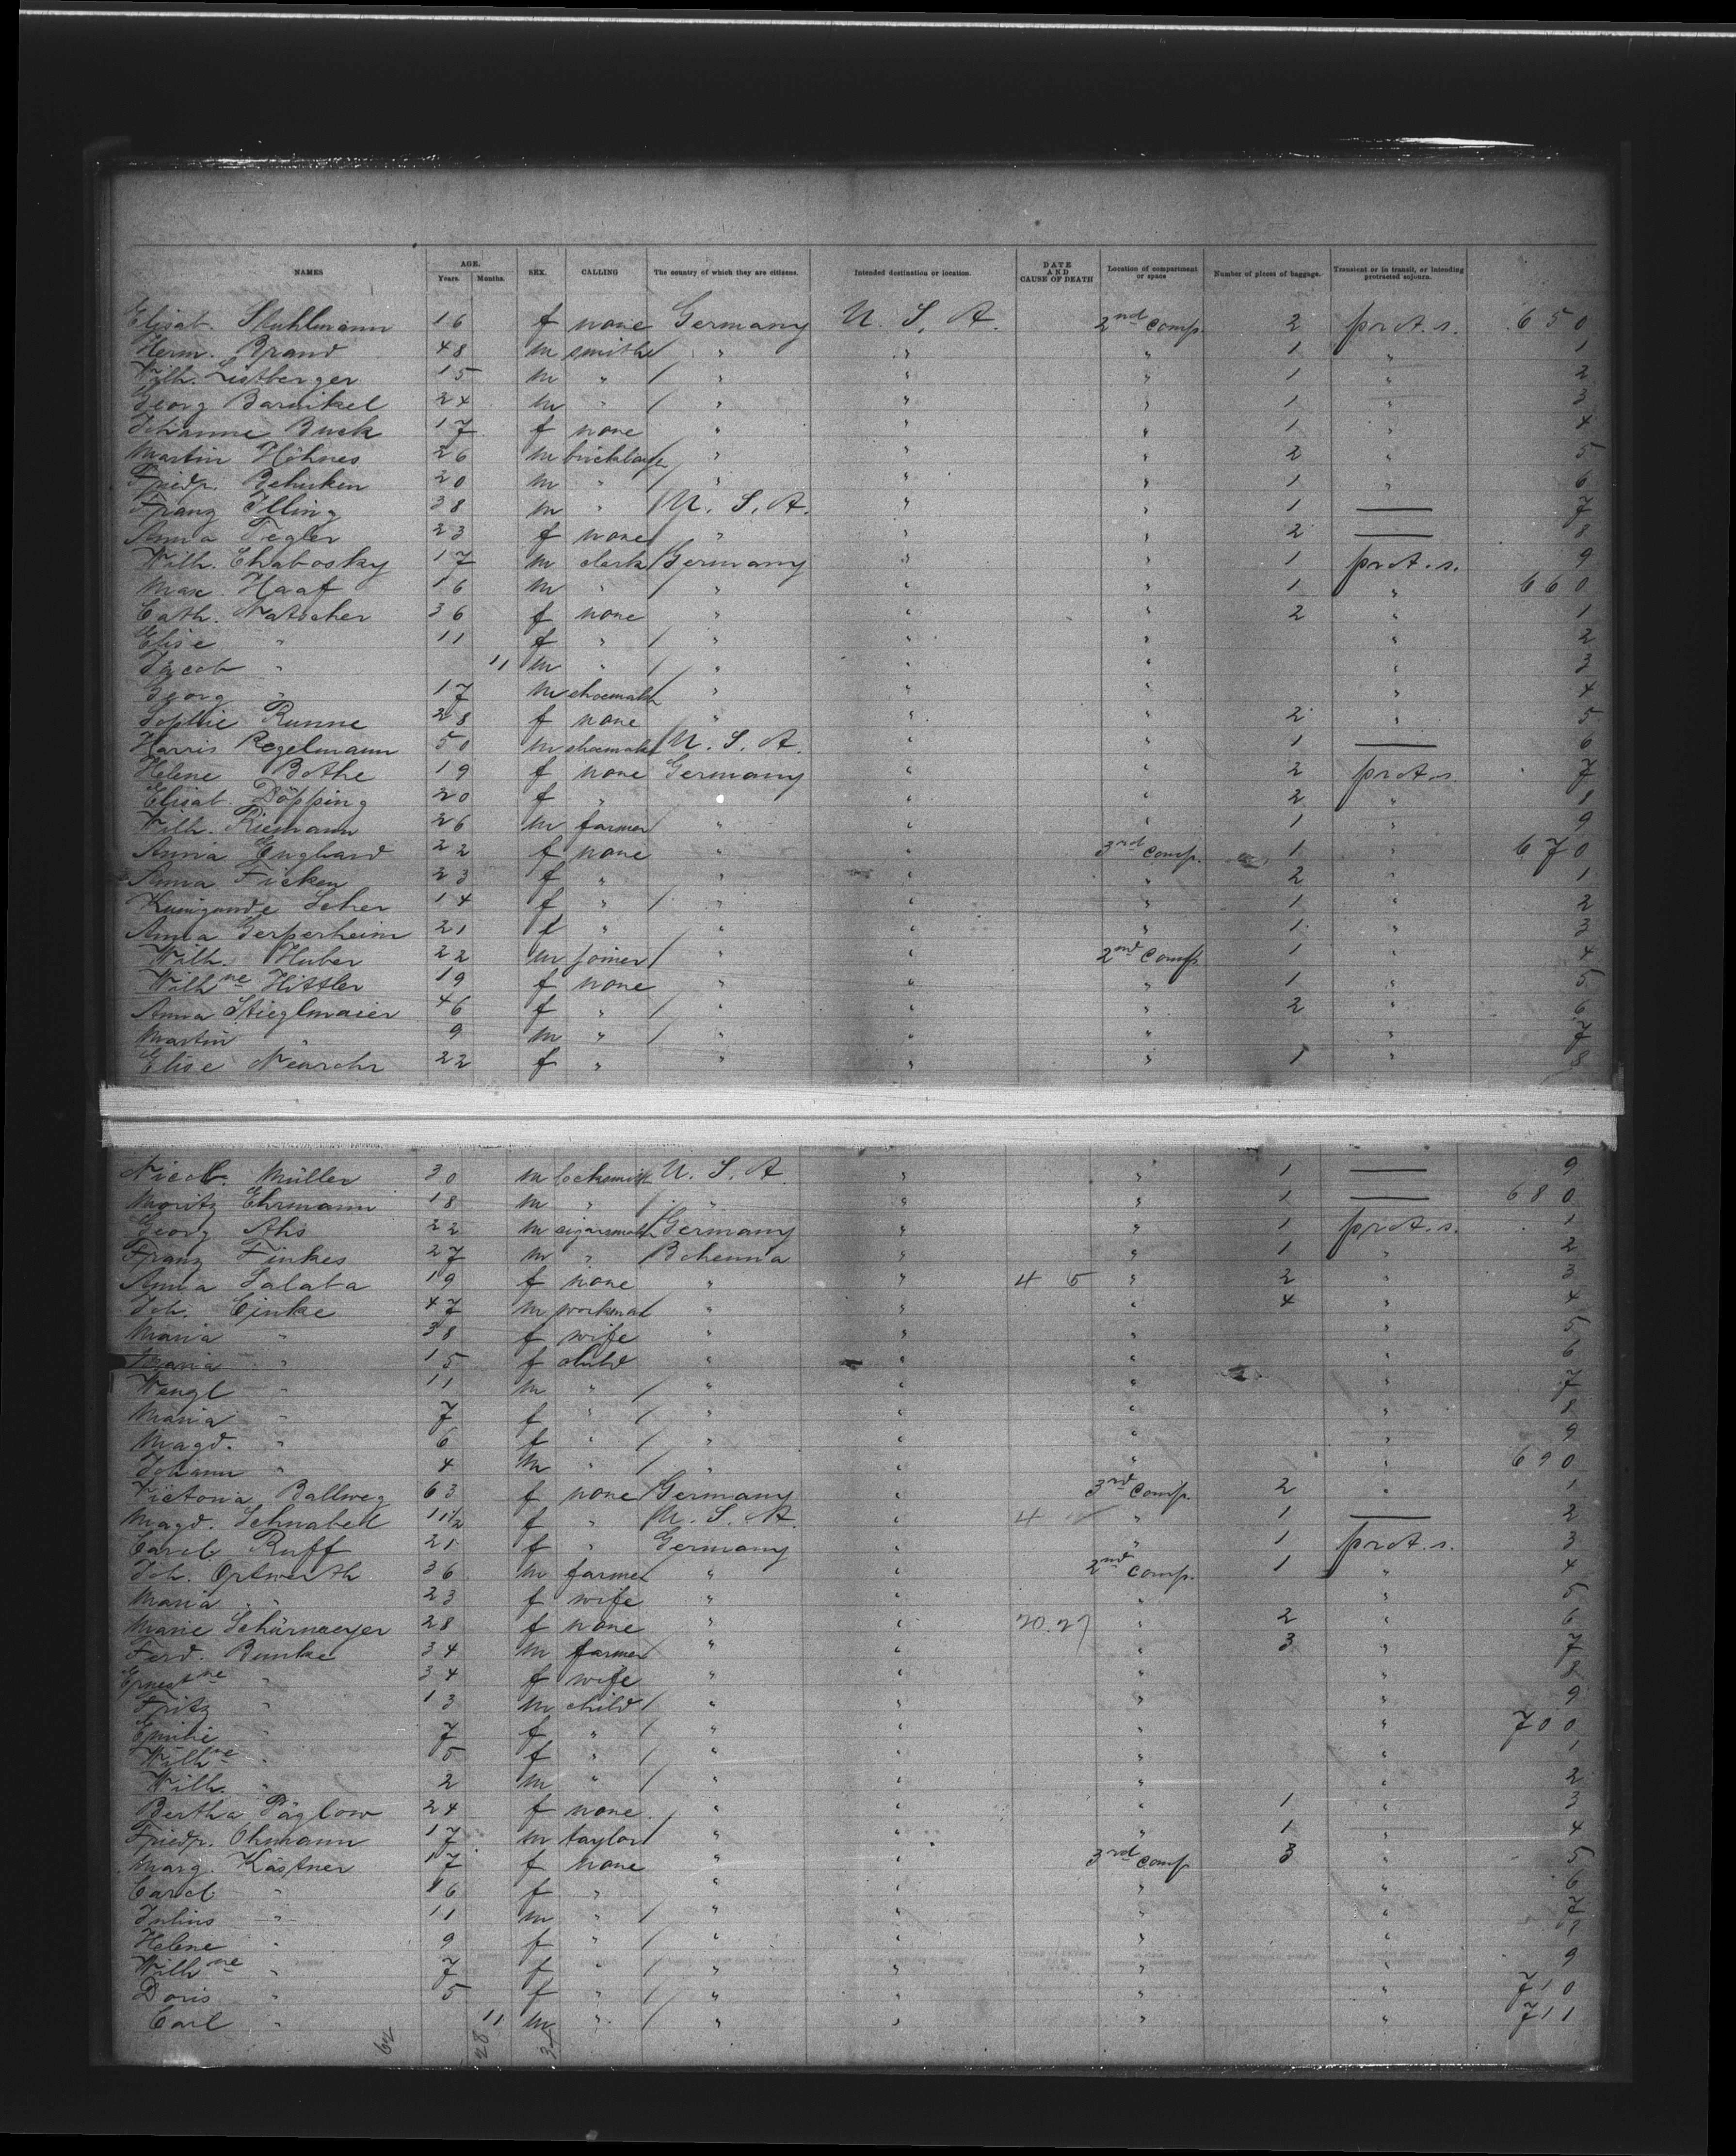 NAMES AGE. Years. Months. SEX. CALLING The country of which they are citizens. Intended destination or location. DATE AND CAUSE OF DEATH Location of compartment or space Number of pieces of baggage. Transient or in transit, or intending protracted sojourn.
Elisab. Stuhlmann 16 f none Germany U. S. A. 2nd comp. 2 prot. s. 650
Herm. Brand 48 m smith " " " 1 " 1
Wilh. Listberger 15 m " / " " " 1 " 2
Georg Barnikel 24 m " / " " " 1 " 3
Johanne Buck 17 f none " " " 1 " 4
Martin Höhnes 26 m " " " 2 " 5
Friedr. Behnken 20 m " / " " " 1 " 6
Franz Illing 38 m " / U. S. A. " " 1 — 7
Anna Tegler 23 f none " " " 2 — 8
Wilh. Chabosky 17 m clerk / Germany " " 1 prot. s. 9
Max Haaf 16 m " / " " " 1 " 660
Cath. Natscher 36 f none " " " 2 " 1
Elise " 11 f " / " " " " 2
Jacob " 11 m " / " " " " 3
Georg " 17 m shoemak " " " " 4
Sophie Runne 28 f none " " " 2 " 5
Harris Regelmann 50 m shoemak / U. S. A. " " 1 — 6
Helene Bothe 19 f none Germany " " 2 prot. s. 7
Elisab. Döpping 20 f " " " " 2 " 8
Wilh. Riemann 26 m farmer " " " 1 " 9
Anna Enghard 22 f none " " 3rd comp. 1 " 670
Anna Ficken 23 f " " " " 2 " 1
Kunigunde Scher 14 f " / " " " 1 " 2
Anna Gerperheim 21 f " " " " 1 " 3
Wilh. Huber 22 m joiner / " " 2nd comp. 1 " 4
Wilhne Hittler 19 f none " " " 1 " 5
Anna Stieglmaier 46 f " / " " " 2 " 6
Martin " 9 m " / " " " " 7
Elise Neurohr 22 f " " " " 1 " 8
Müller 30 m locksmith U. S. A. " " 1 — 9
Moritz Ehrmann 18 m " / " " " 1 — 680
Georg Ahs 22 m cigarsmak Germany " " 1 prot. s. 1
Franz Finkes 27 m " Bohemia " " 1 " 2
Anna Salaba 19 f none " " 4 5 " 2 " 3
Joh. Cinke 47 m workman " " " 4 " 4
Maria " 38 f wife " " " " 5
Maria " 15 f child " " " " 6
Wengl " 11 m " / " " " " 7
Maria " 7 f " / " " " " 8
Magd. " 6 f " / " " " " 9
Johann " 4 m " / " " " " 690
Victoria Ballweg 63 f none Germany " 3rd comp. 2 " 1
Magd. Schnabel 11½ f " / U. S. A. " 4 " 1 — 2
Carol. Ruff 21 f " Germany " " 1 prot. s. 3
Joh. Ortwerth 36 m farmer " " 2nd comp. 1 " 4
Maria " 23 f wife " " " " 5
Marie Schürmeyer 28 f none " " 20.27 " 2 " 6
Ferd. Bunke 34 m farmer " " " 3 " 7
Ernestne " 34 f wife " " " " 8
Fritz " 13 m child / " " " " 9
Emilie " 7 f " / " " " " 700
Wilhne " 5 f " / " " " " 1
Wilh. " 2 m " / " " " " 2
Bertha Päglow 24 f none " " " 1 " 3
Friedr. Ohmann 17 m taylor / " " " 1 " 4
Marg. Kästner 17 f none " " 3rd comp. 3 " 5
Carol. " 16 f " " " " " 6
Julius " 11 m " / " " " " 7
Helene " 9 f " / " " " " 8
Wilhne " 7 f " / " " " " 9
Doris " 5 f " / " " " " 710
Carl " 11 m " / " " " " 711
62 28 34